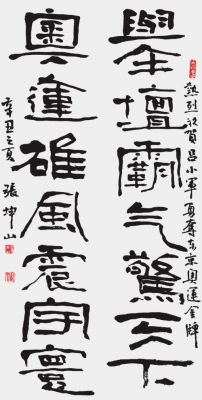 熱烈祝賀呂小軍勇奪东京奧運金牌
舉壇霸气驚天下
奧運雄風震宇寰
辛丑之夏 張坤山